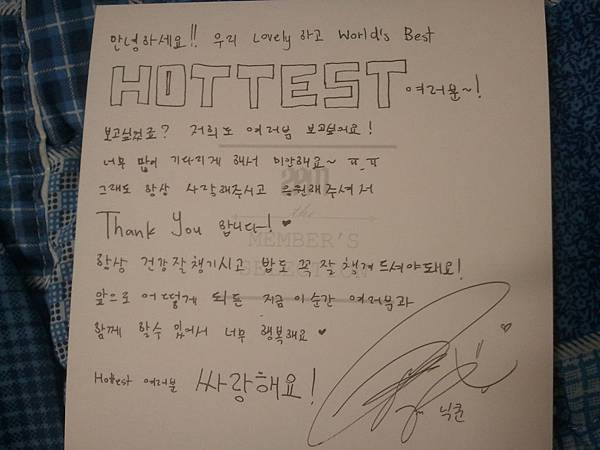 안녕하세요!! 우리 Lovely 하고 World's Best
HOTTEST 여러분~!
보고싶었죠? 저희도 여러분 보고싶어요!
너무 많이 기다리게 해서 미안해요~ ㅠ_ㅠ
그래도 항상 사랑해주시고 응원해주셔서
2am
Thank You 합니다~! ♥
the
MEMBER'S
항상 건강 잘 챙기시고 밥도 꼭 잘 챙겨 드셔야돼요!
앞으로 어떻게 되든 지금 이순간 여러분과
함께 할수 있어서 너무 행복해요 ♥
Hottest 여러분 싸랑해요!
닉쿤